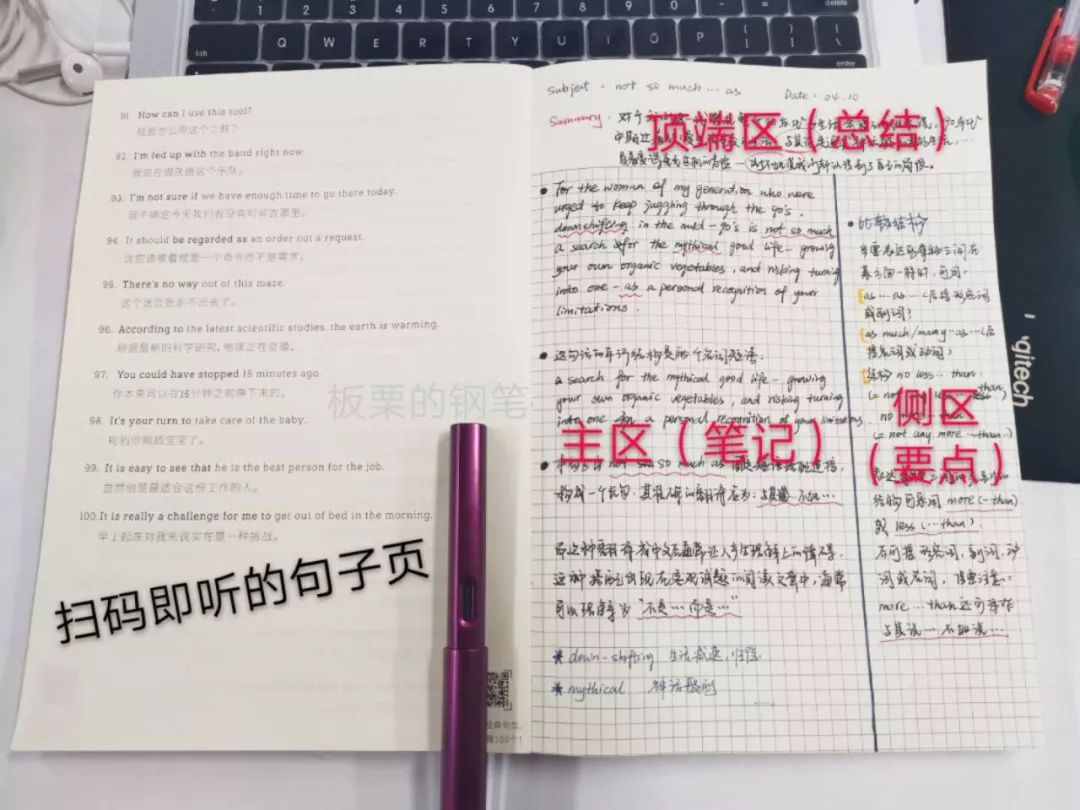 tab
Q W E R T Y U I O P
delete
enter
91. How can I use this tool?
我要怎么用这个工具?
92. I'm fed up with the band right now.
我现在很厌倦这个乐队。
93. I'm not sure if we have enough time to go there today.
我不确定今天我们有没有时间去那里。
94. It should be regarded as an order not a request.
这应该被看做是一个命令而不是需求。
95. There's no way out of this maze.
这个迷宫是走不出去了。
96. According to the latest scientific studies, the earth is warming.
根据最新的科学研究,地球正在变暖。
97. You could have stopped 15 minutes ago.
你本来可以在15分钟之前停下来的。
98. It's your turn to take care of the baby.
轮到你照顾宝宝了。
99. It is easy to see that he is the best person for the job.
显然他是最适合这份工作的人。
100. It is really a challenge for me to get out of bed in the morning.
早上起床对我来说实在是一种挑战。
扫码即听的句子页
板栗的钢笔
Subject . not so much … as
Date . 04.10
Summary .
顶端区(总结)
For the woman of my generation who were
urged to keep juggling through the 90's,
downshifting in the mid-90's is not so much
a search for the mythical good life - growing
your own organic vegetables, and risking turning
into one - as a personal recognition of your
limitations.
a search for the mythical good life - growing
your own organic vegetables, and risking turning
into one a personal recognition of your limitations
主区(笔记)
not so much as
可以理解为"不是…而是…"
* down-shifting 生活减速,
* mythical 神话般的
比较结构
as … as …
或副词;
as much/many … as …
结构 no less … than
侧区
(要点)
(= not any more … than …)
结构可采用 more (… than)
或 less (… than).
后可接形容词,副词,动
词或名词,
more … than 还可译作
与其说…不如说…
gitech